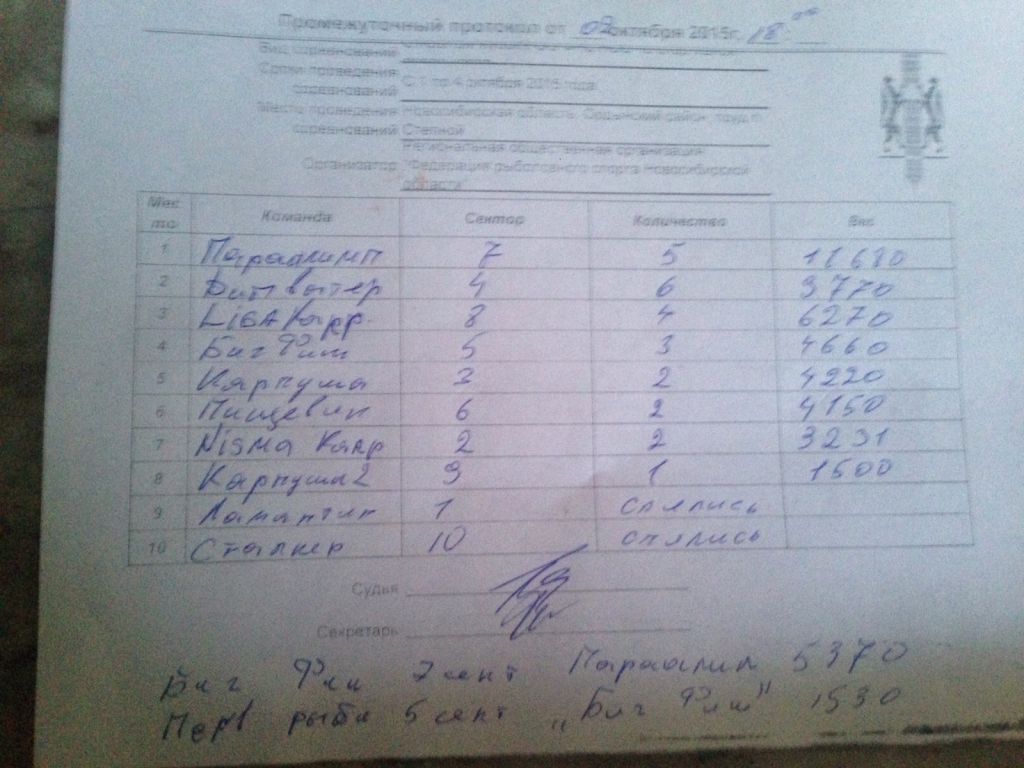 Промежуточный протокол от 02 октября 2015г. 18:00
Вид соревнований
Сроки проведения соревнований С 1 по 4 октября 2015 года
Место проведения Новосибирская область, Ордынский район, пруд п.
соревнований Степной
Региональная общественная организация
Организатор "Федерация рыболовного спорта Новосибирской
области"
Место Команда Сектор Количество Вес
1 Параалимп 7 5 11680
2 4 6 9770
3 LIGA Карр 8 4 6270
4 Биг Фиш 5 3 4660
5 Карпуша 3 2 4220
6 Пищевик 6 2 4150
7 Nisma Karp 2 2 3231
8 Карпуша 2 9 1 1500
9 Ламантин 1 снялись
10 Сталкер 10 снялись
Судья
Секретарь
Биг Фиш 7 сект Параалимп 5370
Перв рыба 5 сект „Биг Фиш" 1530